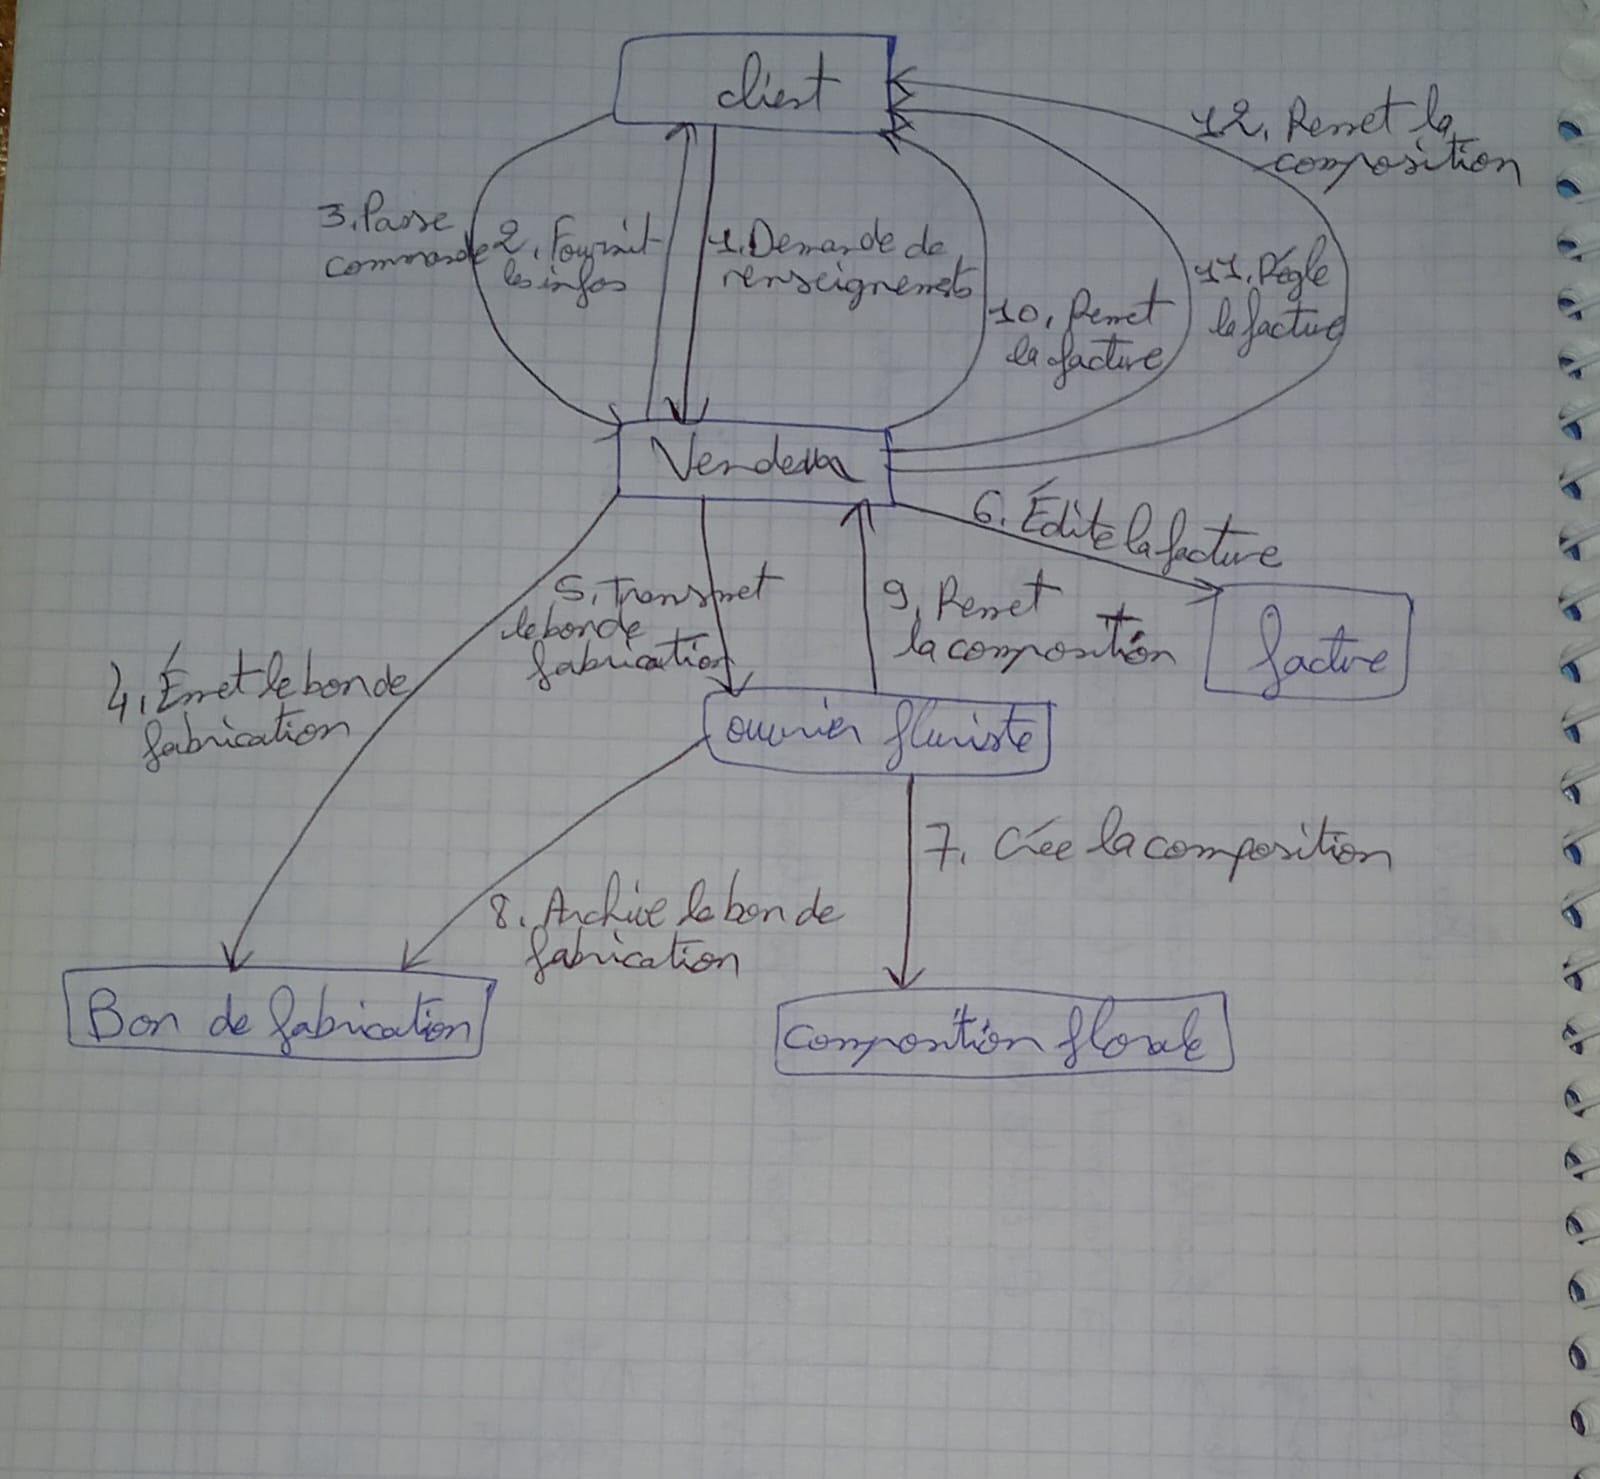 client
12. Remet la
composition
3. Passe
commande
2. Fournit
les infos
1. Demande de
renseignements
10. Remet
la facture
11. Règle
la facture
Vendeur
6. Édite la facture
5. Transmet
le bon de
fabrication
9. Remet
la composition
facture
4. Émet le bon de
fabrication
ouvrier fluriste
7. Crée la composition
8. Archive le bon de
fabrication
Bon de fabrication
composition florale